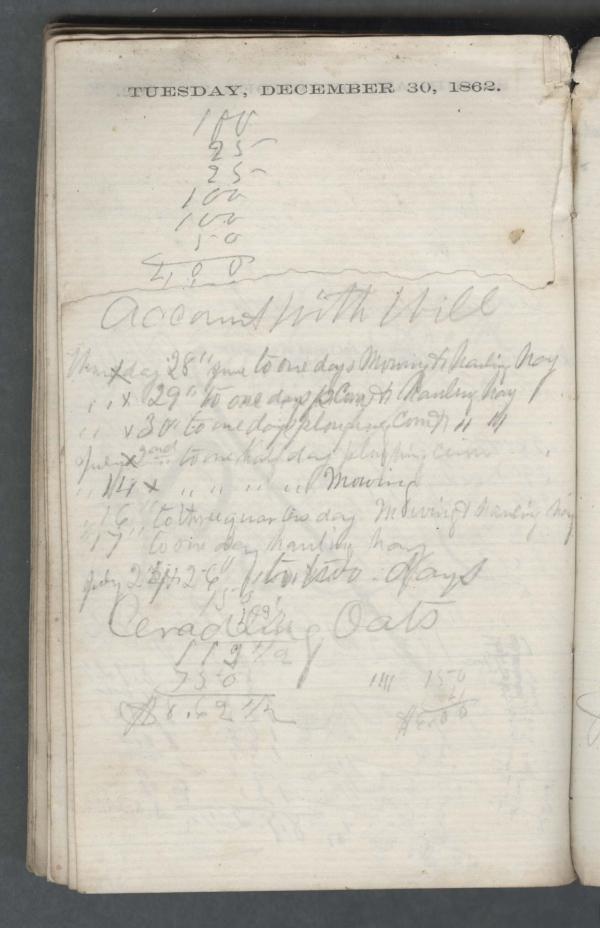 TUESDAY, DECEMBER 30, 1862.
100
25
25
100
100
50
4,00
Account With Will
Thursday 28" June to one days Mowing & hauling hay
" " x 29" to one days Corn & hauling hay
" " x 30" to one days ploughing Corn & " "
July x 2nd to one half day ploughing corn
" 14 x " " " " " Mowing
" 16" to three quarters day Mowing & hauling hay
" 17" to one day hauling hay
July 25 & 26" to two days
Ceradling Oats
119 1/2
750
$8.62 1/2
"" 150
4
$6.00